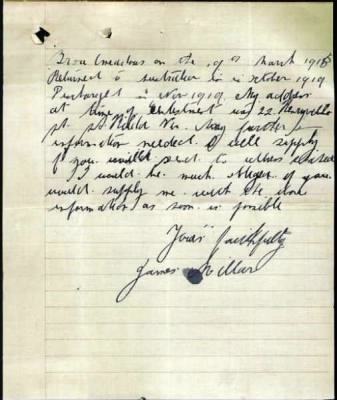 Broadmeadows on the 19th March 1915
Returned to Australia in October 1919
Discharged in Nov 1919 My address
at time of Enlistment was 22
St St Kilda Vic. Any further
information needed I will supply
if you would
I would be much obliged if you
would supply me with the
information as soon as possible
Yours faithfully
James